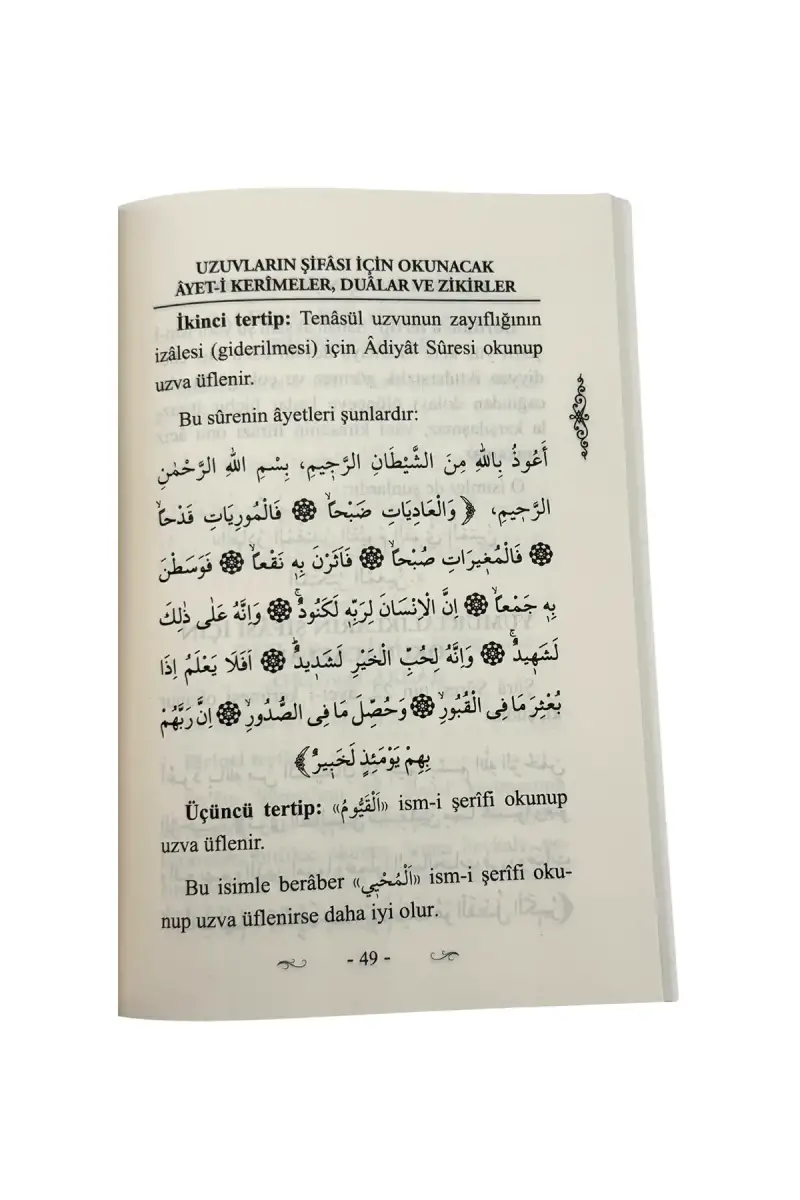 UZUVLARIN ŞİFÂSI İÇİN OKUNACAK
ÂYET-İ KERÎMELER, DUÂLAR VE ZİKİRLER
İkinci tertip: Tenâsül uzvunun zayıflığının
izâlesi (giderilmesi) için Âdiyât Sûresi okunup
uzva üflenir.
Bu sûrenin âyetleri şunlardır:
أَعُوذُ بِاللّٰهِ مِنَ الشَّيْطَانِ الرَّجِيمِ، بِسْمِ اللّٰهِ الرَّحْمٰنِ
الرَّحِيمِ، ﴿وَالْعَادِيَاتِ ضَبْحاًۙ ۞ فَالْمُورِيَاتِ قَدْحاًۙ
۞ فَالْمُغِيرَاتِ صُبْحاًۙ ۞ فَاَثَرْنَ بِهِ نَقْعاًۙ ۞ فَوَسَطْنَ
بِهِ جَمْعاًۙ ۞ اِنَّ الْاِنْسَانَ لِرَبِّهِ لَكَنُودٌۚ ۞ وَاِنَّهُ عَلٰى ذٰلِكَ
لَشَهِيدٌۚ ۞ وَاِنَّهُ لِحُبِّ الْخَيْرِ لَشَدِيدٌۜ ۞ اَفَلَا يَعْلَمُ اِذَا
بُعْثِرَ مَا فِى الْقُبُورِۙ ۞ وَحُصِّلَ مَا فِى الصُّدُورِۙ ۞ اِنَّ رَبَّهُمْ
بِهِمْ يَوْمَئِذٍ لَخَبِيرٌ﴾
Üçüncü tertip: «اَلْقَيُّومُ» ism-i şerîfi okunup
uzva üflenir.
Bu isimle berâber «اَلْمُحْيِي» ism-i şerîfi oku-
nup uzva üflenirse daha iyi olur.
- 49 -